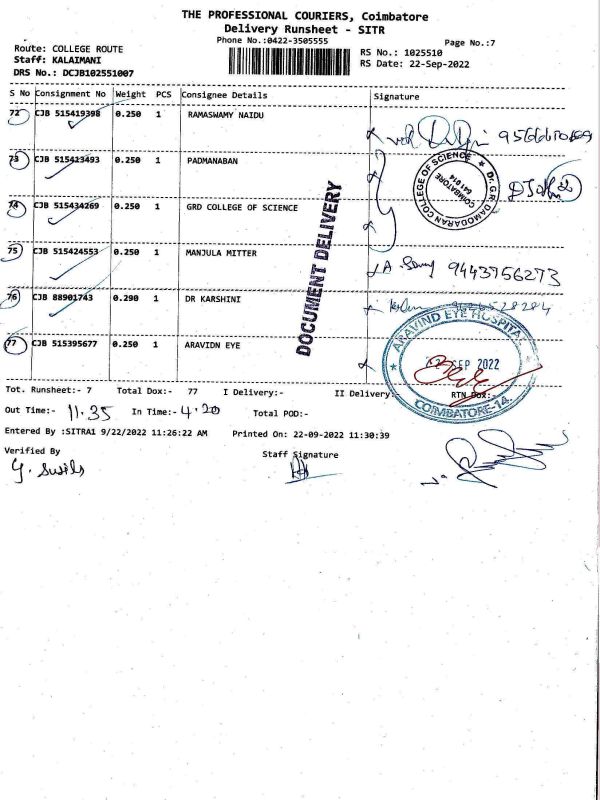 THE PROFESSIONAL COURIERS, Coimbatore
Delivery Runsheet - SITR
Phone No.:0422-3505555
Page No.:7
Route: COLLEGE ROUTE
Staff: KALAIMANI
DRS No.: DCJB102551007
RS No.: 1025510
RS Date: 22-Sep-2022
S No Consignment No Weight PCS Consignee Details Signature
72 CJB 515419398 0.250 1 RAMASWAMY NAIDU
73 CJB 515423493 0.250 1 PADMANABAN
74 CJB 515434269 0.250 1 GRD COLLEGE OF SCIENCE
75 CJB 515424553 0.250 1 MANJULA MITTER 9443756273
76 CJB 88901743 0.290 1 DR KARSHINI
77 CJB 515395677 0.250 1 ARAVIDN EYE
DOCUMENT DELIVERY
Dr.G.R. DAMODARAN COLLEGE OF SCIENCE
COIMBATORE
641 014
ARAVIND EYE HOSPITAL
SEP 2022
COIMBATORE-14.
Tot. Runsheet:- 7 Total Dox:- 77 I Delivery:- II Delivery:- RTN Dox:-
Out Time:- 11.35 In Time:- 4.20 Total POD:-
Entered By :SITRA1 9/22/2022 11:26:22 AM Printed On: 22-09-2022 11:30:39
Verified By Staff Signature